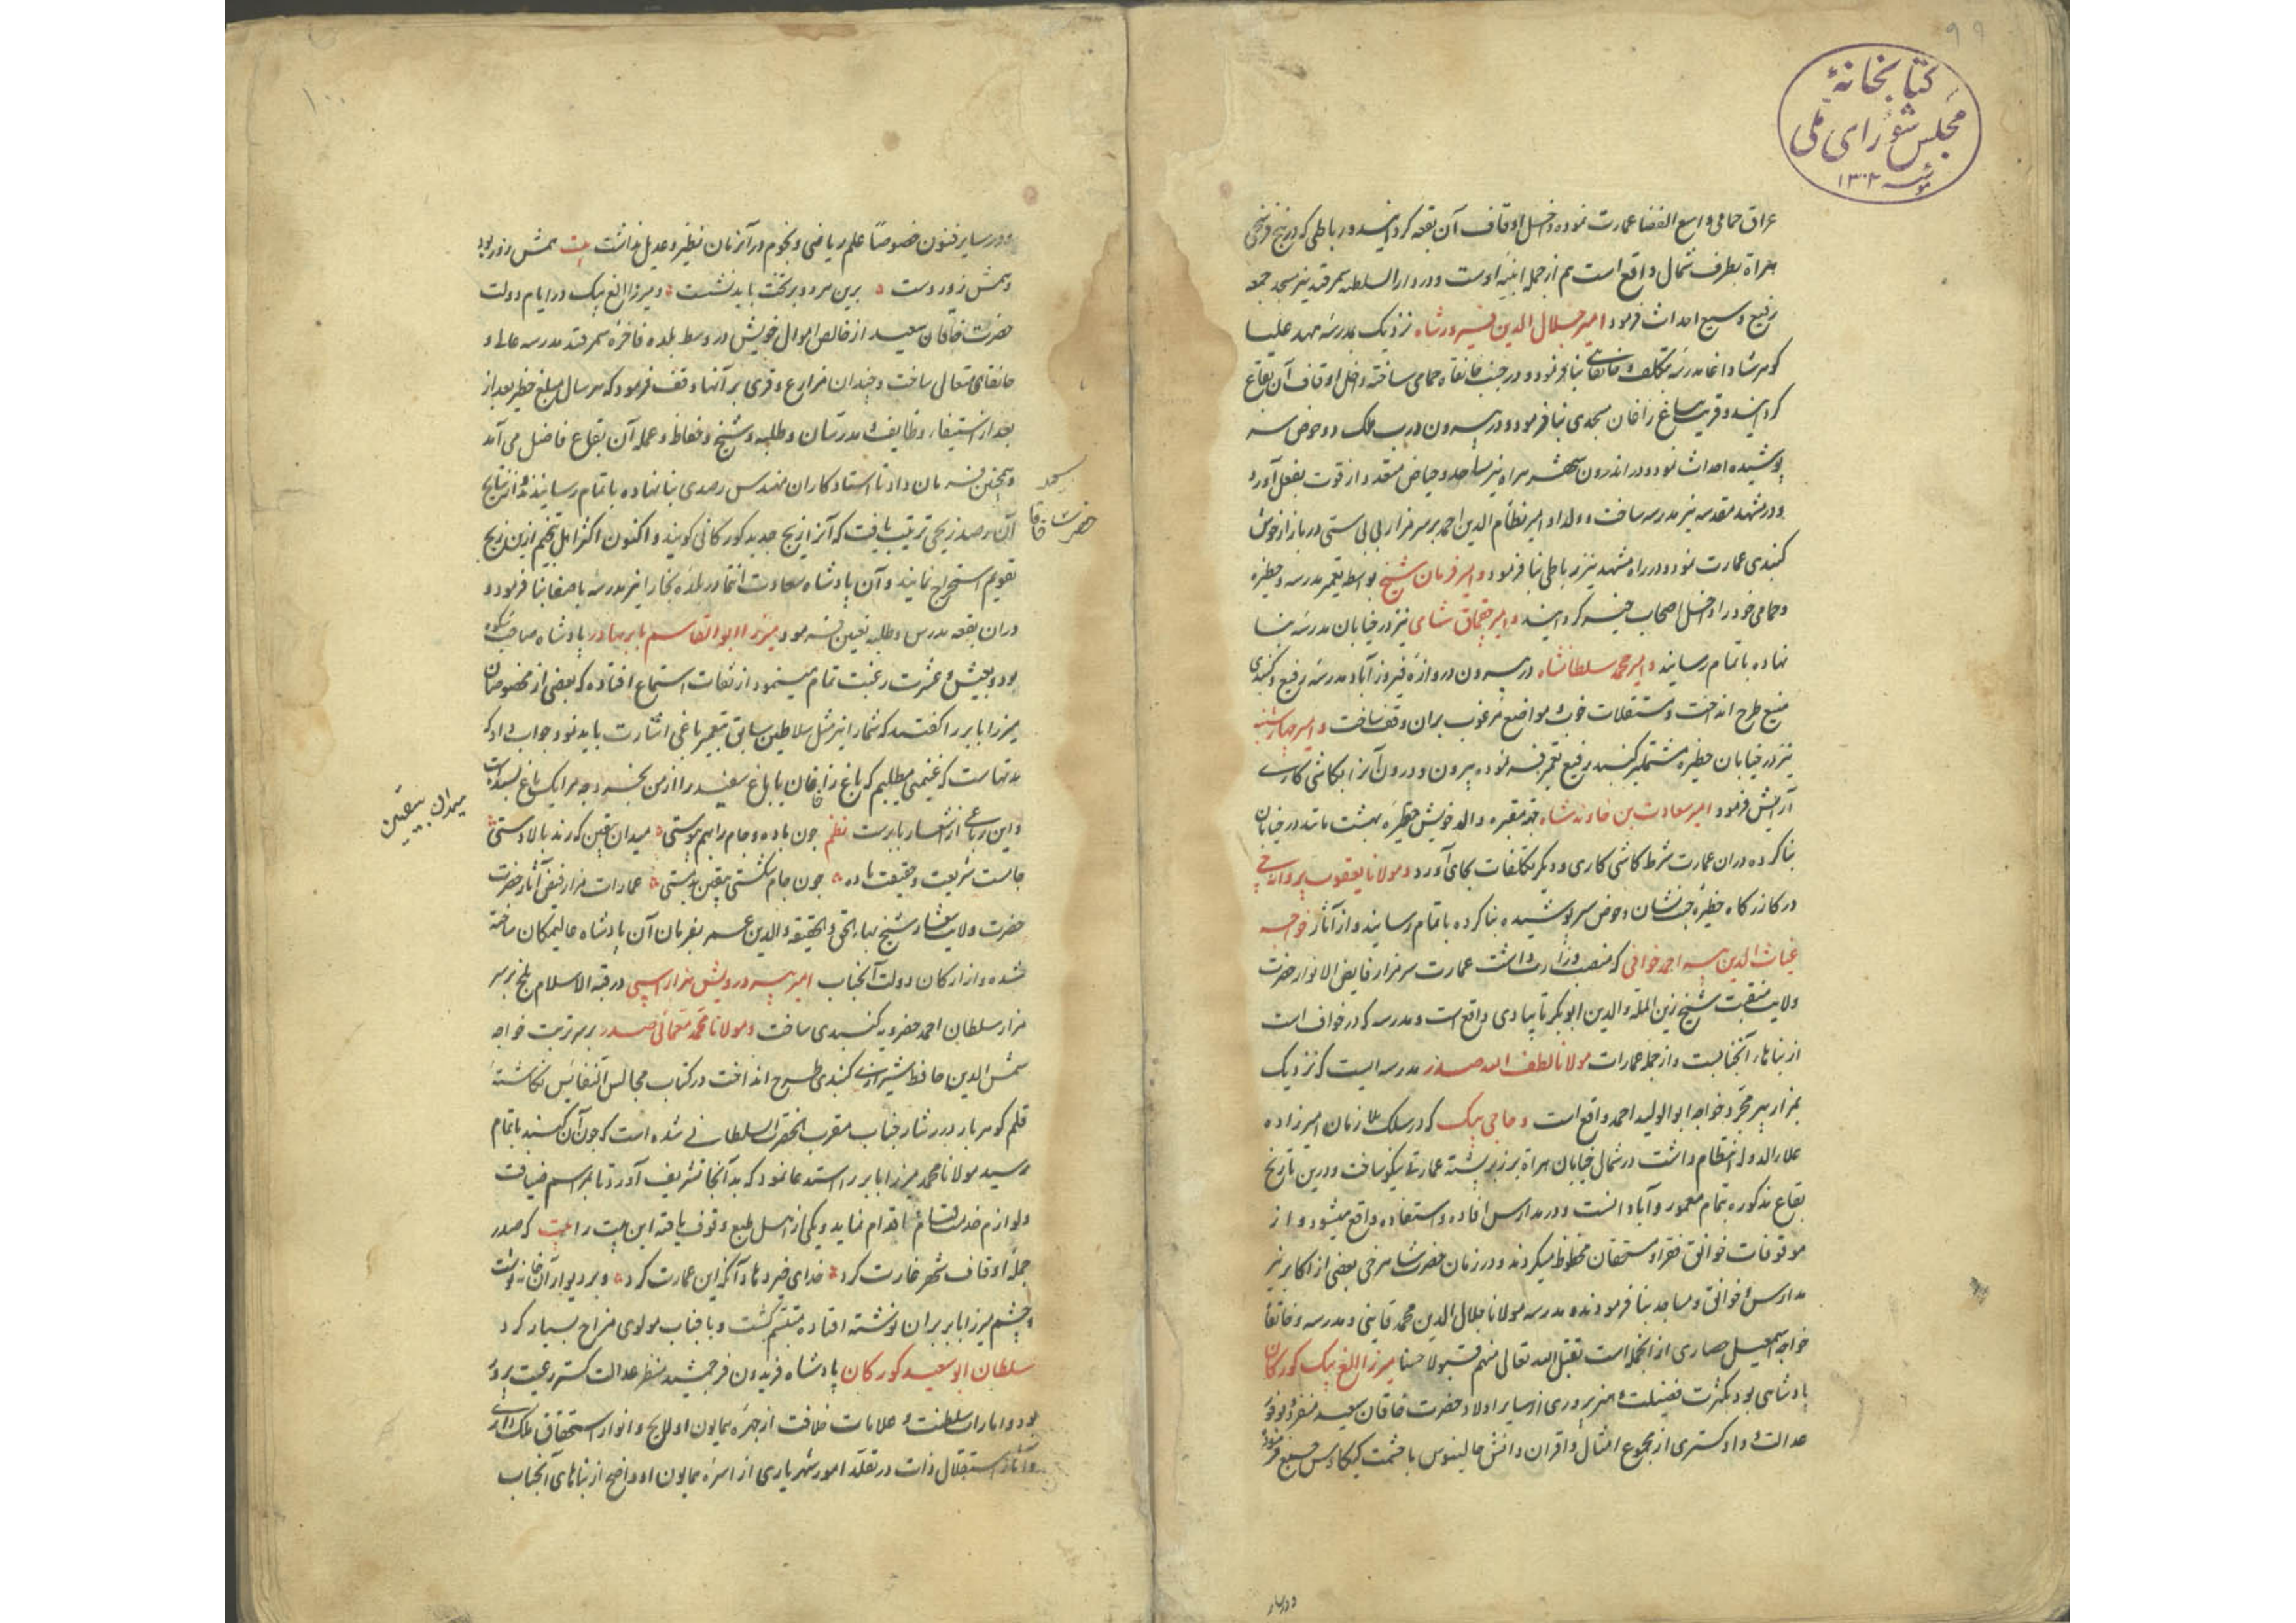 ۹۹
کتابخانهٔ
مجلس شورای ملی
مؤسسه ۱۳۰۲
عراق حمامی واسع الفضا عمارت نموده داخل اوقاف آن بقعه کردانید و رباطی که در پنج فرسخی
هراة بطرف شمال واقع است هم از جمله ابنیه اوست و در دار السلطنه سمرقند نیز مسجد جمعه
رفیع وسیع احداث فرمود امیر جلال الدین فیروزشاه نزدیک بمدرسه مهد علیا
کوهرشاد اغا مدرسه بتکلف و خانقاهی بنا فرمود و در جنب خانقاه حمامی ساخته داخل اوقاف آن بقاع
کردانید و قریب بباغ زاغان مسجدی بنا فرمود و در بیرون درب ملک دو حوض سر
پوشیده احداث نمود و در اندرون شهر هراه نیز مساجد و حیاض متعدد از قوت بفعل آورد
و در مشهد مقدسه نیز مدرسه ساخت و ولد او امیر نظام الدین احمد بر سر مزار بی بی ستی در بازار خوش
کنبدی عمارت نمود و در راه مشهد نیز رباطی بنا فرمود و امیر فرمان شیخ بواسطه تعمیر مدرسه و حظیره
و حمامی خود را داخل اصحاب خیر کردانید و امیر چقماق شامی نیز در خیابان مدرسه بنا
نهاده باتمام رسانید و امیر محمد سلطانشاه در بیرون دروازه فیروزآباد مدرسه رفیع و کنبدی
منیع طرح انداخت و مستغلات خوب و مواضع مرغوب بران وقف ساخت و امیر چهارشنبه
نیز در خیابان حظیره مشتمل بر کنبد رفیع تعمیر فرموده بیرون و درون آنرا بکاشی کاری
آرایش فرمود امیر سعادت بن خاوندشاه جهة مقبره والد خویش حظیره بهشت مانند در خیابان
بنا کرده دران عمارت شرط کاشی کاری و دیکر تکلفات بجای آورد و مولانا یعقوب پروانچی
در کازرکاه حظیره جنت نشان و حوض سرپوشیده بنا کرده باتمام رسانید و از آثار خواجه
غیاث الدین پیر احمد خوافی که منصب وزارت داشت عمارت سر مزار فایض الانوار حضرت
ولایت منقبت شیخ زین الملة والدین ابوبکر تایبادی واقع است و مدرسه که در خواف است
از بناهاء آنجنابست و از جمله عمارات مولانا لطف الله صدر مدرسه ایست که نزدیک
بمزار پیر مجرد خواجه ابو الولید احمد واقع است و حاجی بیک که در سلک ملازمان امیرزاده
علاء الدوله انتظام داشت در شمال خیابان هراة بر زبر پشته عمارتی نیکو ساخت و درین تاریخ
بقاع مذکوره بتمام معمور و آبادانست و در مدارس افاده و استفاده واقع میشود و از
موقوفات خوانق فقرا و مستحقان محظوظ میکردند و در زمان حضرت شاهرخی بعضی از اکابر نیز
مدارس و خوانق و مساجد بنا فرمودند و مدرسه مولانا جلال الدین محمد قاینی و مدرسه و خانقاه
خواجه اسمعیل حصاری از انجمله است تقبل الله تعالی منهم قبولا حسنا میرزا الغ بیک کورکان
پادشاهی بود بکثرت فضیلت و هنرپروری از سایر اولاد حضرت خاقان سعید منفرد و بوفور
عدالت و دادکستری از مجموع امثال و اقران دانش جالینوس با حشمت کیکاوس جمع فرموده
و در سایر
۱۰۰
و در سایر فنون خصوصا علم ریاضی و نجوم در آن زمان نظیر و عدیل نداشت بیت همش زور بود
و همش زور دست برین هر دو بر تخت باید نشست و میرزا الغ بیک در ایام دولت
حضرت خاقان سعید از خالص اموال خویش در وسط بلده فاخره سمرقند مدرسه عالی و
خانقاهی متعالی ساخت و چندان مزارع و قری بر آنها وقف فرمود که هر سال مبلغ خطیر بعد از
بعد از استیفاء وظایف مدرسان و طلبه و شیخ و حفاظ و عمله آن بقاع فاضل می آمد
و همچنین فرمان داد تا استادکاران مهندس رصدی بنا نهاده باتمام رسانیدند و از نتایج
آن رصد زیجی ترتیب یافت که آنرا زیج جدید کورکانی کویند و اکنون اکثر اهل تنجیم ازین زیج
تقویم استخراج نمایند و آن پادشاه سعادت انتما در بلده بخارا نیز مدرسه باصفا بنا فرمود و
دران بقعه مدرس و طلبه تعیین فرمود میرزا ابو القاسم بابر بهادر پادشاه صاحب شکوه
بود و بعیش و عشرت رغبت تمام مینمود از ثقات استماع افتاده که بعضی از مخصوصان
میرزا بابر را کفتند که شما را نیز مثل سلاطین سابق بتعمیر باغی اشارت باید نمود جواب داد که
مدتهاست که غنیمی میطلبیم که باغ زاغان یا باغ سفید را از من بخرد چه مرا یک باغ بسنده است
و این رباعی از اشعار بابرست نظم چون باده و جام را بهم پیوستی میدان بیقین که رند بالا دستی
جامست شریعت و حقیقت باده چون جام شکستی بیقین بدمستی عمارات مزار فیض آثار حضرت
حضرت ولایت شعار شیخ بهاء الحق والحقیقه والدین عمر بفرمان آن پادشاه عالیمکان ساخته
شده و از ارکان دولت آنجناب امیر پیر درویش هزار اسپی در قبة الاسلام بلخ بر سر
مزار سلطان احمد خضرویه کنبدی ساخت و مولانا محمد معمائی صدر بر سر تربت خواجه
شمس الدین حافظ شیرازی کنبدی طرح انداخت در کتاب مجالس النفایس نکاشته
قلم کوهربار درر نثار جناب مقرب الحضرت السلطانی شده است که چون آن کنبد باتمام
رسید مولانا محمد میرزا بابر را استدعا نمود که بدآنجا تشریف آورد تا بمراسم ضیافت
و لوازم خدمت قیام اقدام نماید و یکی از اهل طبع وقوف یافته این بیت را بیت که صدر
جمله اوقاف شهر غارت کرد خدای خیر دهاد آنکه این عمارت کرد و بر دیوار آن خانه نوشت
و چشم میرزا بابر بران نوشته افتاده متبسم کشت و با جناب مولوی مزاح بسیار کرد
سلطان ابو سعید کورکان پادشاه فریدون فر جمشید منظر عدالت کستر رعیت پرور
بود و امارات سلطنت و علامات خلافت از چهره همایون او لایح و انوار استحقاق ملک داری
و آثار استقلال ذات در تقلد امور شهریاری از اسره همایون او واضح از بناهای آنجناب
حضرت خاقا
میدان بیقین